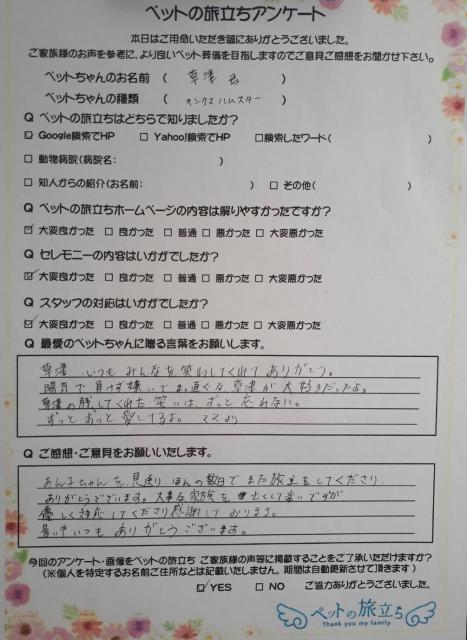 ペットの旅立ちアンケート
本日はご用命いただき誠にありがとうございました。
ご家族様のお声を参考に、より良いペット葬儀を目指しますのでご意見ご感想をお聞かせ下さい。
ペットちゃんのお名前 ( 草津 )
ペットちゃんの種類 ( キンクマハムスター )
Q ペットの旅立ちはどちらで知りましたか?
☑ Google検索でHP □ Yahoo!検索でHP □検索したワード( )
□ 動物病院(病院名: )
□ 知人からの紹介(お名前: ) □ その他( )
Q ペットの旅立ちホームページの内容は解りやすかったですか?
☑ 大変良かった □ 良かった □ 普通 □ 悪かった □ 大変悪かった
Q セレモニーの内容はいかがでしたか?
☑ 大変良かった □ 良かった □ 普通 □ 悪かった □ 大変悪かった
Q スタッフの対応はいかがでしたか?
☑ 大変良かった □ 良かった □ 普通 □ 悪かった □ 大変悪かった
Q 最愛のペットちゃんに贈る言葉をお願いします。
草津 いつもみんなを笑わしてくれてありがとう。
陽気で負けず嫌いで 草津が大好きだったよ。
草津の残してくれた笑いは、ずっと忘れない。
ずっとずっと愛してるよ。 ママより
Q ご感想・ご意見をお願いいたします。
あん子ちゃんを見送り ほんの数日でまた旅立をしてくださり
ありがとうございます。大事な家族を亡くして辛いですが
優しく対応してくださり感謝しております。
暑い中いつもありがとうございます。
今回のアンケート・画像をペットの旅立ち ご家族様の声等に掲載することをご了承いただけますか?
(※個人を特定するお名前ご住所などは記載いたしません。期間は自動更新させて頂きます)
☑ YES □ NO ご協力ありがとうございました。
ペットの旅立ち
Thank you my family